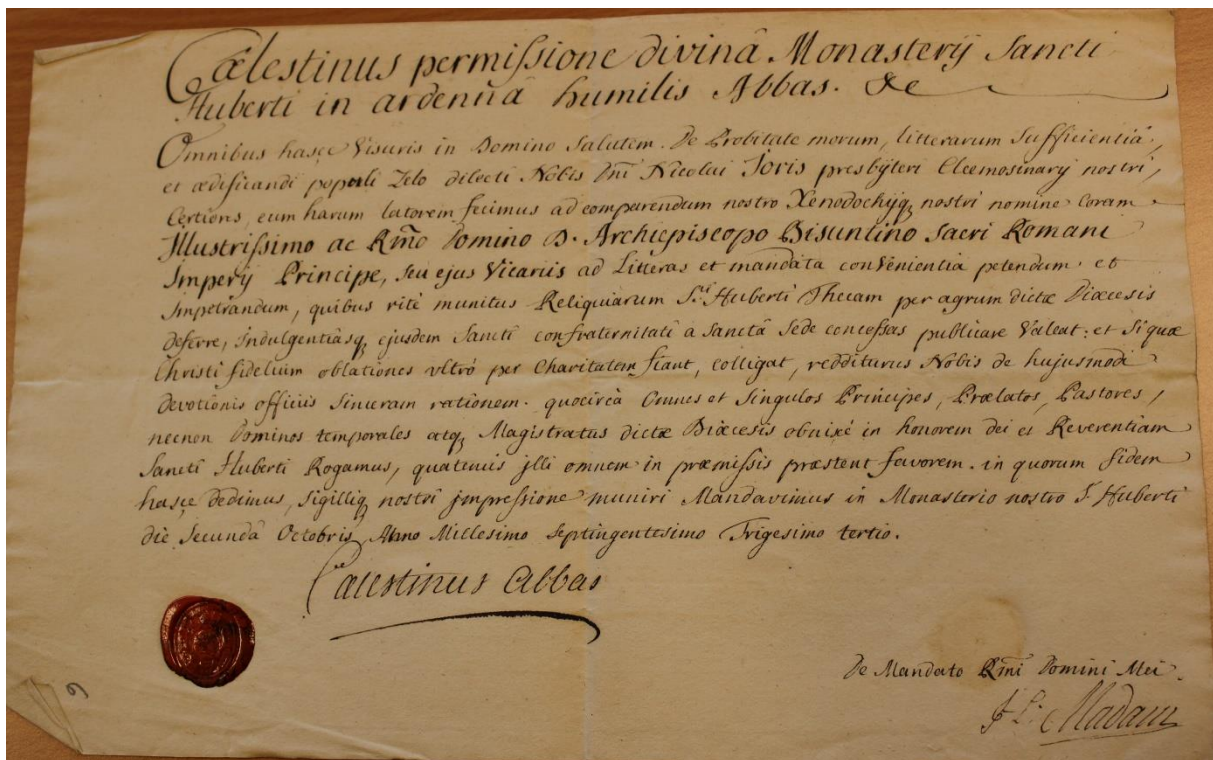 Cælestinus permissione divinâ Monasterij Sancti
Huberti in ardennâ humilis Abbas. &c
Omnibus hasce Visuris in Domino Salutem. De Probitate morum, litterarum Sufficientiâ,
et ædificandi populi Zelo dilecti Nobis Dñi Nicolai Joris presbyteri Eleemosinarij nostri,
Certiores, eum harum latorem fecimus ad comparendum nostro Xenodochijq, nostri nomine coram
Illustrissimo ac Rmõ Domino D. Archiepiscopo Bisuntino Sacri Romani
Imperij Principe, seu ejus Vicariis ad Litteras et mandata convenientia petendum et
Impetrandum, quibus ritè munitus Reliquiarum Sti Huberti Thecam per agrum dictæ Diœcesis
deferre, indulgentiasq, ejusdem Sancti confraternitati à Sanctâ Sede concessas publicare Valeat: et Si quæ
Christi fidelium oblationes vltrò per Charitatem fiant, colligat, redditurus Nobis de hujusmodi
devotionis officiis Sinceram rationem. quocircà Omnes et Singulos Principes, Prælatos, Pastores,
necnon Dominos temporales atq, Magistratus dictæ Diœcesis obnixè in honorem dei et Reverentiam
Sancti Huberti Rogamus, quatenus jlli omnem in præmissis præstent favorem. in quorum fidem
hasce dedimus, Sigilliq, nostri jmpressione muniri Mandavimus in Monasterio nostro S. Huberti
die Secundâ Octobris Anno Millesimo Septingentesimo Trigesimo tertio.
Cælestinus Abbas
De Mandato Rmi Domini Mei.
Madam
9